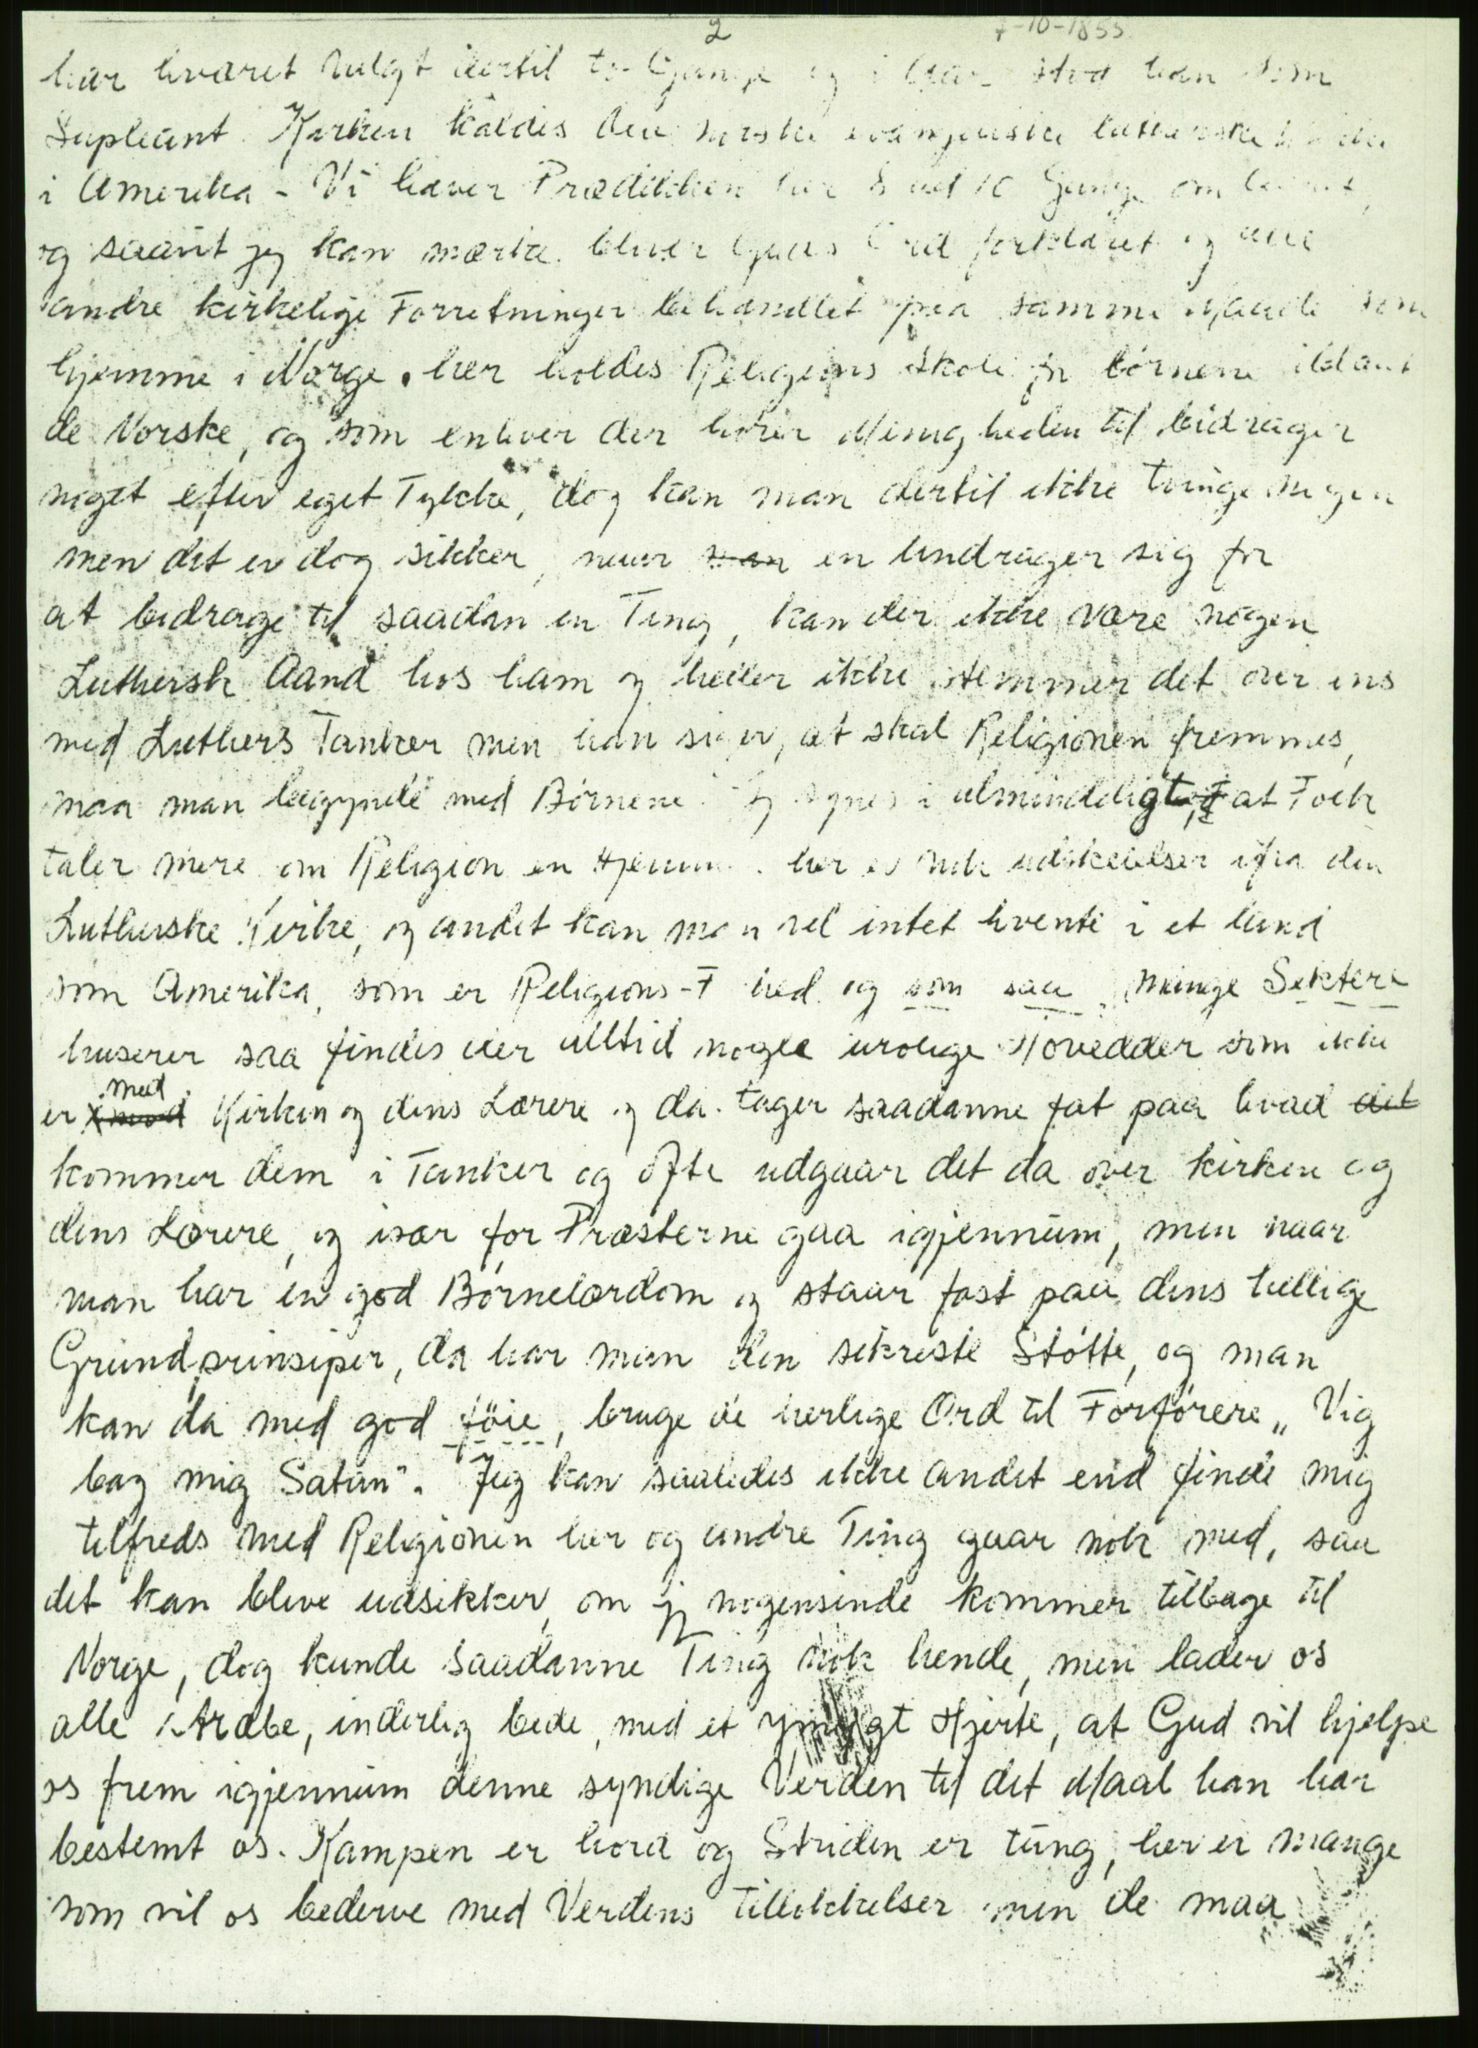 2 7-10-1855
har hværet valgt dertil to Gange og i Aar stod han som
Supleant. Kirken kaldes den norske evangeliske lutherske Kirke
i Amerika - Vi haver Prædikken her 8 ud 10 Gange om Aaret,
og saavit jeg kan mærke bliver Guds Ord forklaret og alle
andre kirkelige Forretninger behandlet paa samme Maade som
hjemme i Norge. her holdes Religions skole for børnene iblant
de Norske, og som enhver der hører Menigheden til bidrager
noget efter eget Tykke, dog kan man dertil ikke tvinge nogen
men det er dog sikker, naar man en undrager sig for
at bidrage til saadan en Ting, kan der ikke være nogen
Luthersk Aand hos ham og heller ikke stemmer det over ens
med Luthers Tanker men han siger, at skal Religionen fremmes,
maa man begynde med Børnene. Jeg synes i almindeligt, at Folk
taler mere om Religion en Hjemme. her er nok udskeielser ifra den
Lutherske Kirke, og andet kan man vel intet hvente i et land
som Amerika, som er Religions-F ihed og som saa mange Sektere
huserer saa findes der alltid nogle urolige Hovedder som ikke
er med Kirken og dens Lærere og da tager saadanne fat paa hvad det
kommer dem i Tanker og ofte udgaar det da over kirken og
dens Lærere, og især for Præsterne gaa igjennum, men naar
man har en god Børnelærdom og staar fast paa dens hellige
Grundprinsiper, da har man den sikreste Støtte, og man
kan da med god føie, bruge de herlige Ord til Forførere „Vig
bag mig Satan". Jeg kan saaledes ikke andet end finde mig
tilfreds med Religionen her og andre Ting gaar nok med, saa
det kan blive udsikker, om jeg nogensinde kommer tilbage til
Norge, dog kunde saadanne Ting nok hende, men lader os
alle stræbe, inderlig bede, med et ymygt Hjerte, at Gud vil hjelpe
os frem igjennum denne syndige Verden til det Maal han har
bestemt os. Kampen er hord og Striden er tung, her er mange
som vil os bederve med Verdens Tillokkelser men de maa